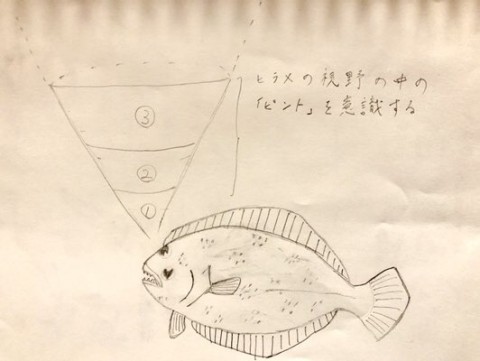 ヒラメの視野の中の
「ピント」を意識する
③
②
①